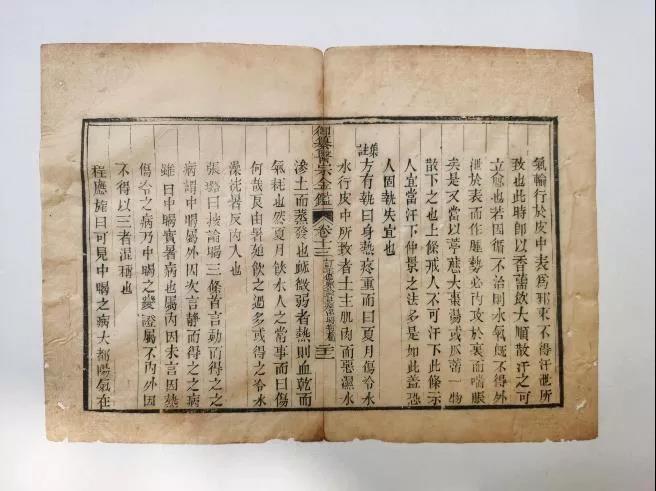 氣輸行於皮中表為邪束不得汗泄所
致也此時即以香薷飲大順散汗之可
立愈也若因循不治則水氣既不得外
泄於表而作腫勢必內攻於裏而喘脹
矣是又當以葶藶大棗湯或瓜蒂一物
散下之也上條戒人不可汗下此條示
人宜當汗下仲景之法多是如此蓋恐
人固執失宜也
集註方有執曰身熱疼重而曰夏月傷冷水
水行皮中所致者土主肌肉而惡濕水
御纂醫宗金鑑 卷十三
滲土而蒸發也脉微弱者熱則血乾而
氣耗也然夏月飲水人之常事而曰傷
何哉良由暑迫飲之過多或得之冷水
澡洗暑反內入也
張璐曰按論暍三條首言動而得之之
病謂中暍屬外因次言靜而得之之病
雖曰中暍實暑病也屬內因末言因熱
傷冷之病乃中暍之變證屬不內外因
不得以三者混稱也
程應旄曰可見中暍之病大都陽氣在